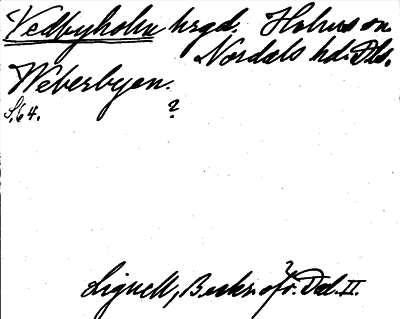 Vedbyholm hrgd. Holms sn
Nordals hd. Dls.
Weberbyen.
S. 64. ?
Lignell, Beskr. öfv. Dal. II.